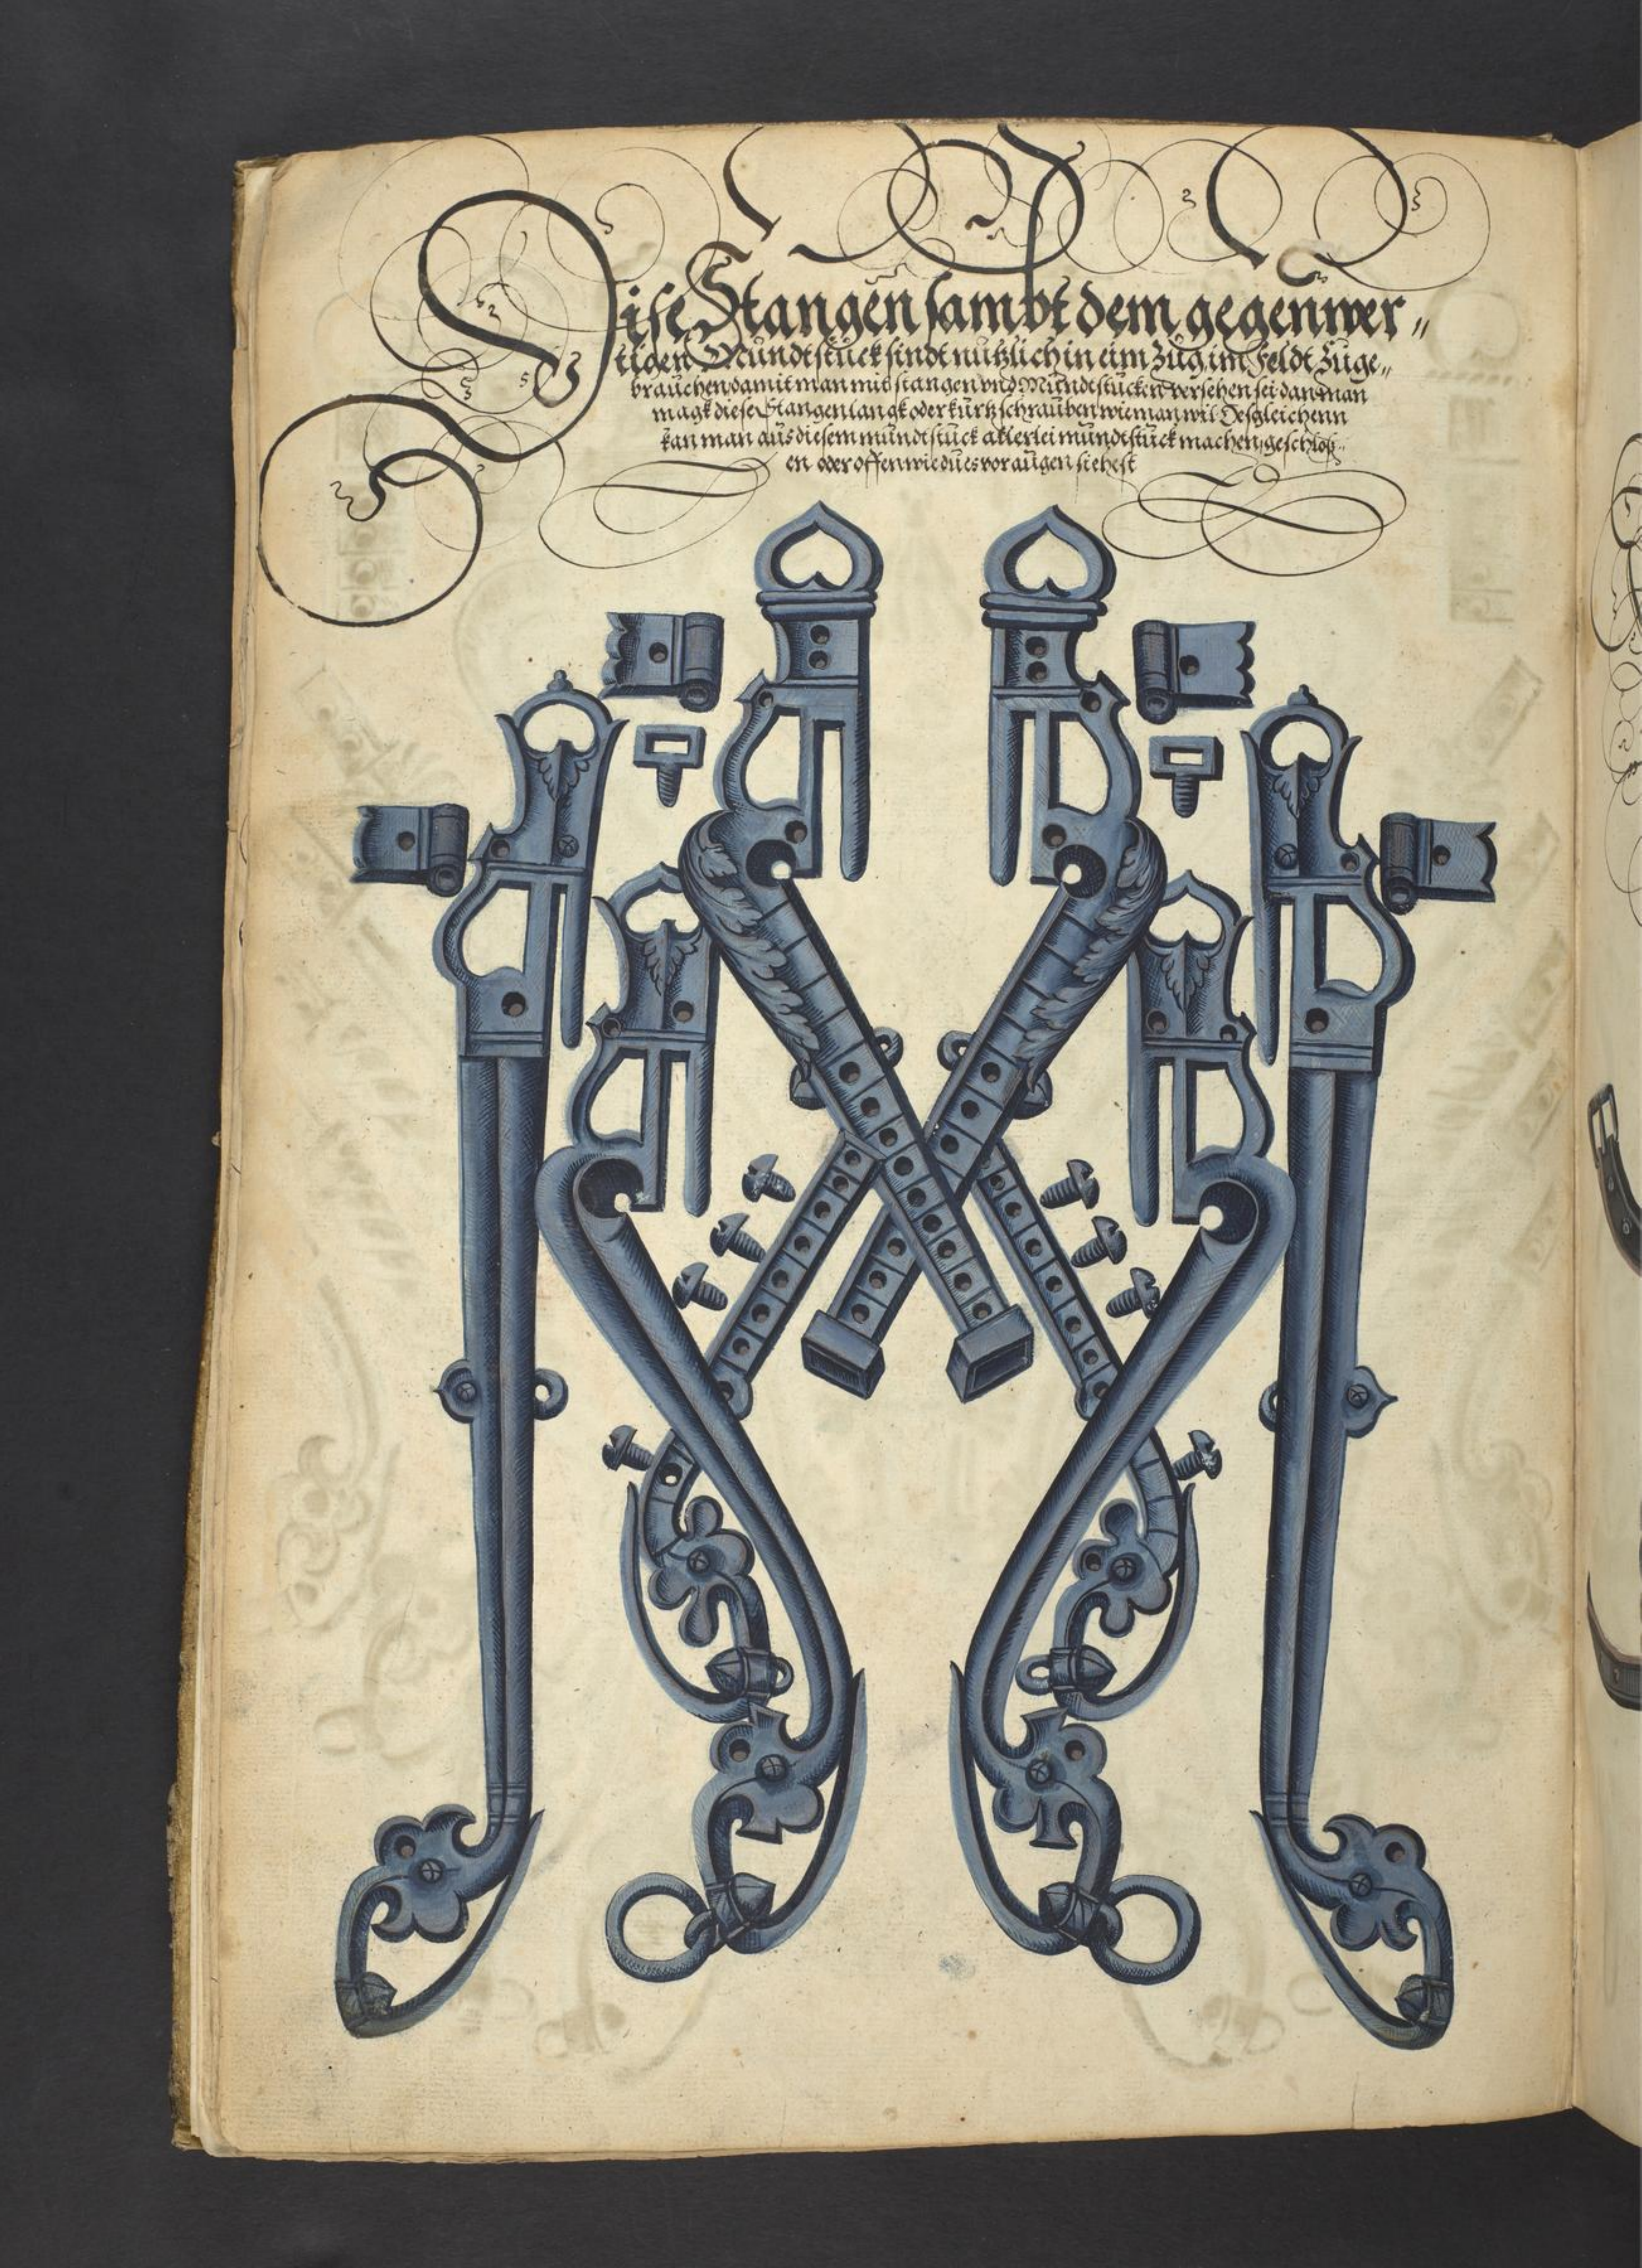 Dise Stangen sambt dem gegenwer„
tigen Mundtstuck sindt nutzlich in eim Zug im Feldt Zuge„
brauchen damit man mit stangen vnd Mundtstucken versehen sei dan man
magk diese Stangen langk oder kurtz schrauben wie man wil Desgleichenn
kan man aus diesem mundtstuck allerlei mundtstuck machen, geschloß„
en oder offen wie du es vor augen siehest